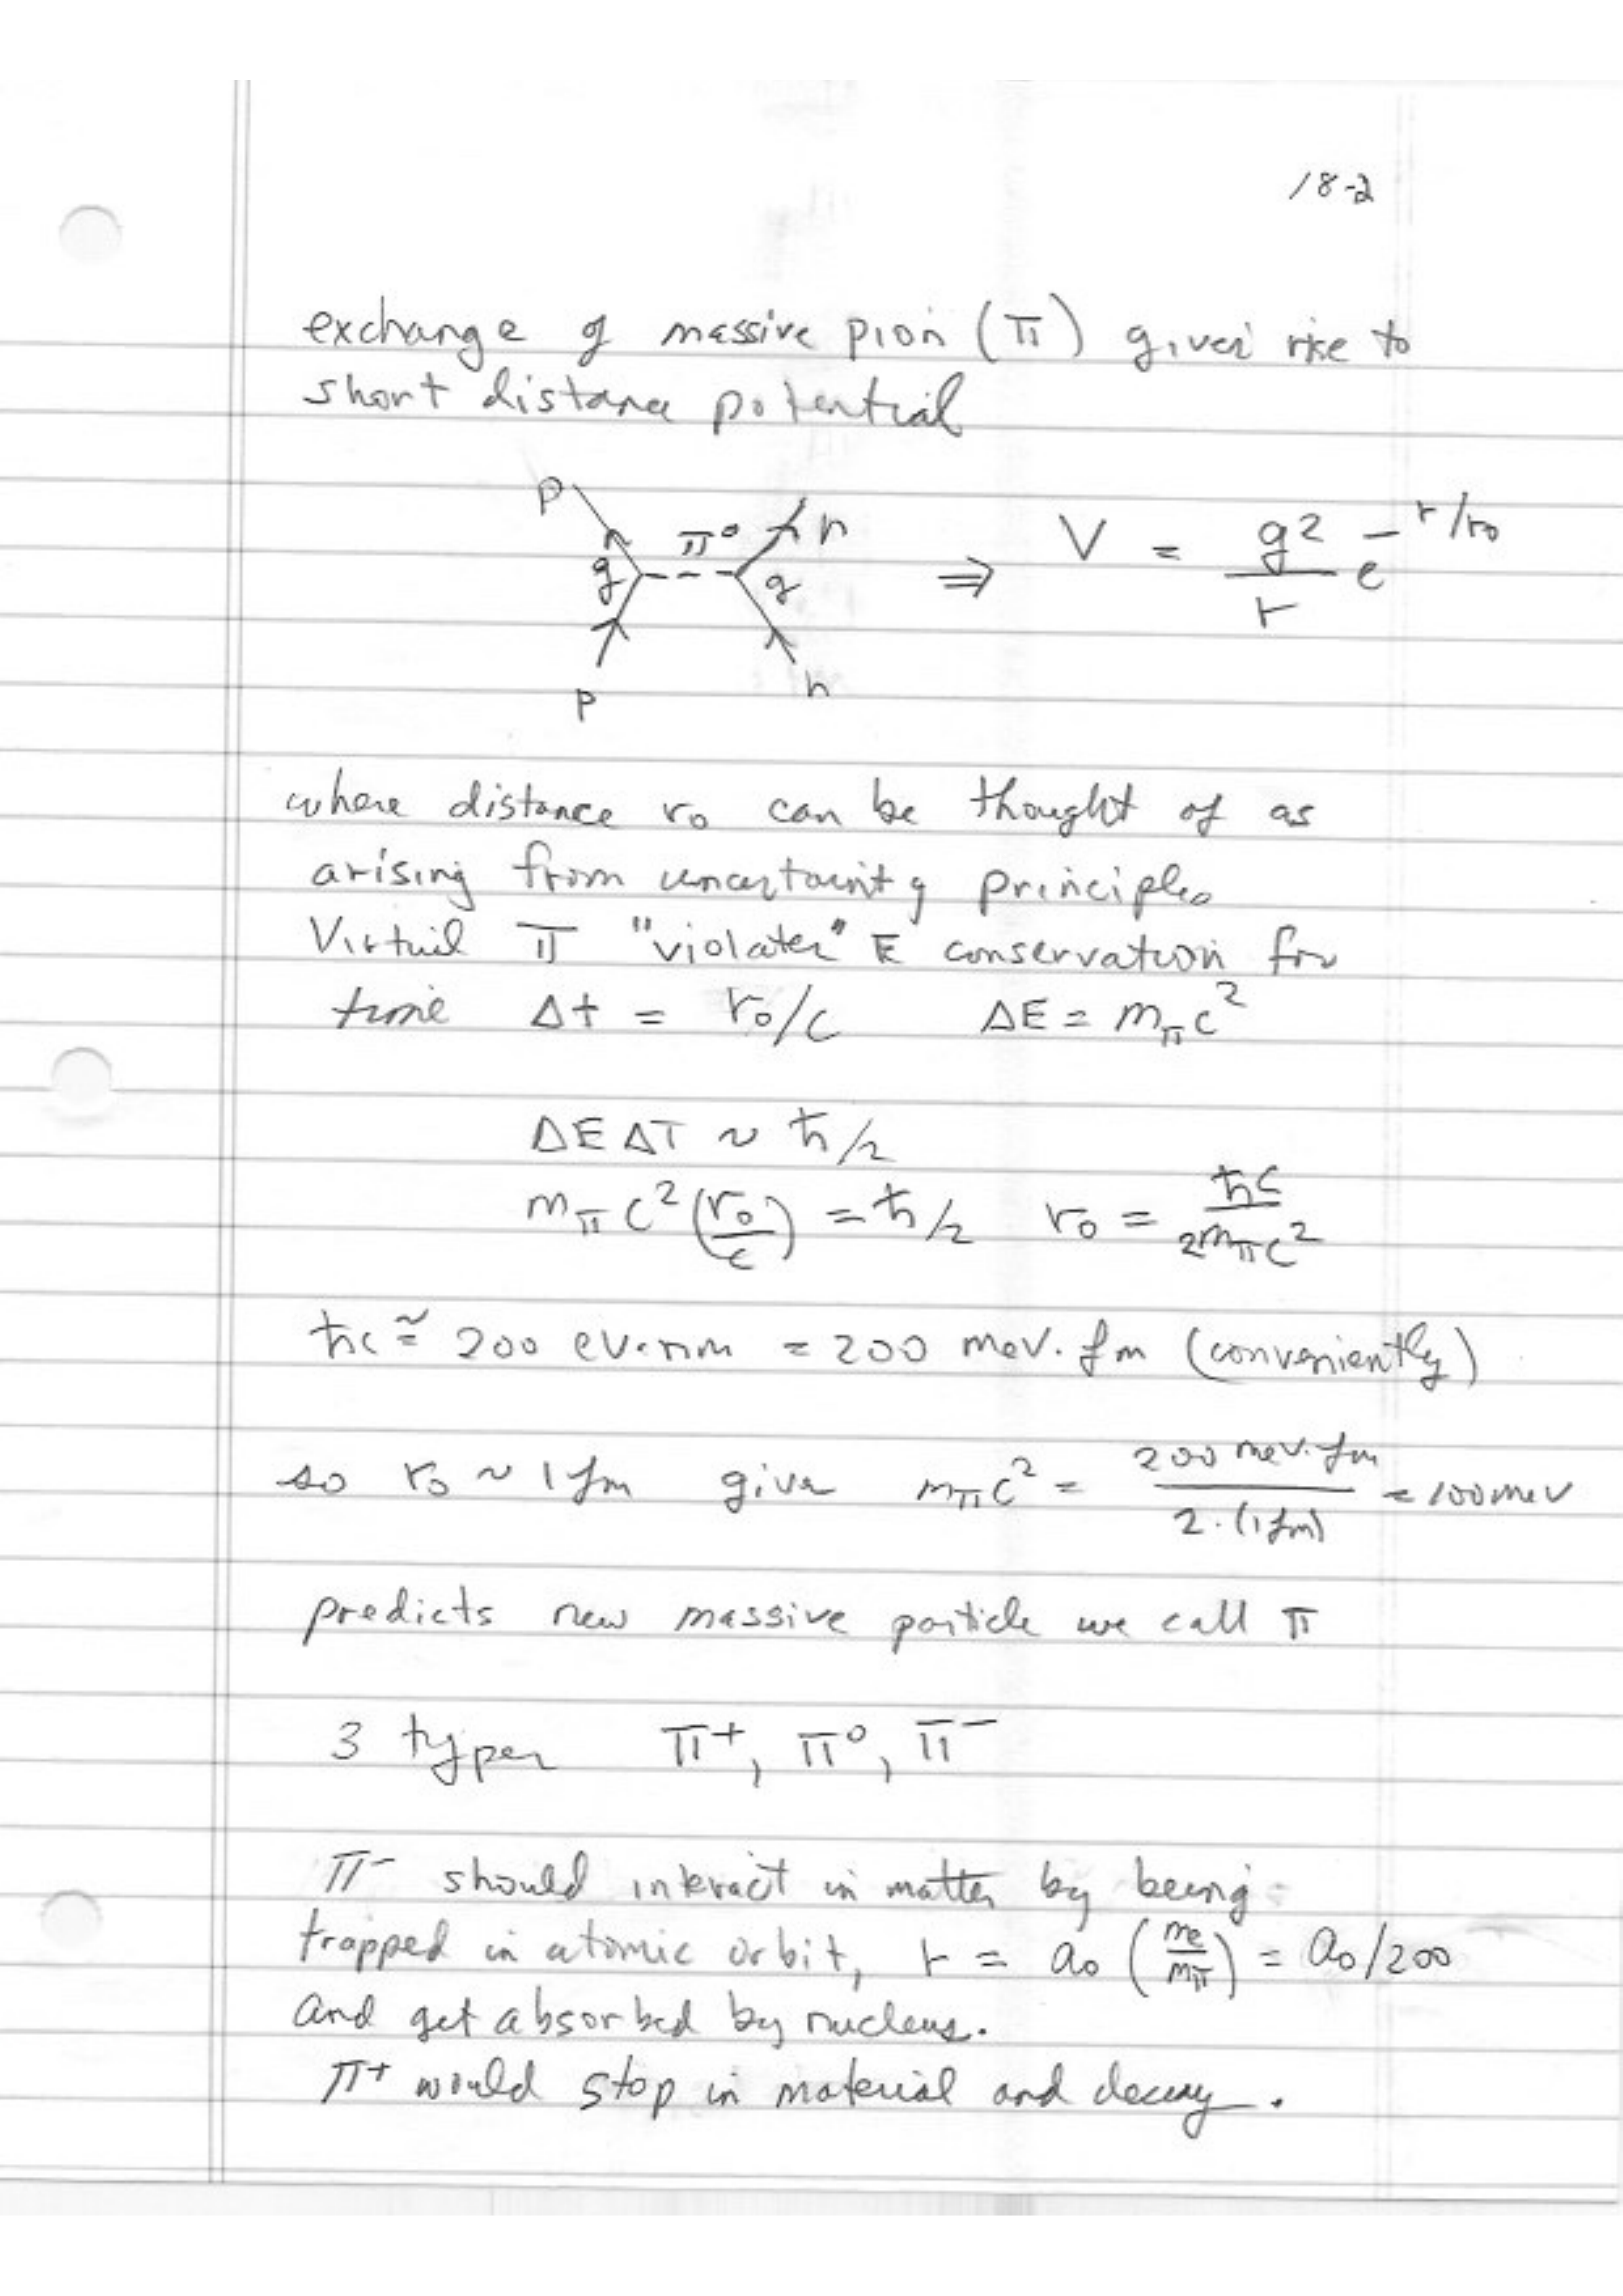 18-2
exchange of massive pion (π) gives rise to
short distance potential
p π⁰ n
g g ⇒ V = g²/r e^(-r/r₀)
p n
where distance r₀ can be thought of as
arising from uncertainty principle.
Virtual π "violates" E conservation for
time Δt = r₀/c ΔE = m_π c²
ΔE ΔT ~ ħ/2
m_π c² (r₀/c) = ħ/2 r₀ = ħc/2m_π c²
ħc ≅ 200 eV·nm = 200 MeV·fm (conveniently)
so r₀ ~ 1 fm gives m_π c² = 200 MeV·fm/2·(1 fm) = 100 MeV
predicts new massive particle we call π
3 types π⁺, π⁰, π⁻
π⁻ should interact in matter by being
trapped in atomic orbit, r = a₀ (me/mπ) = a₀/200
and get absorbed by nucleus.
π⁺ would stop in material and decay.